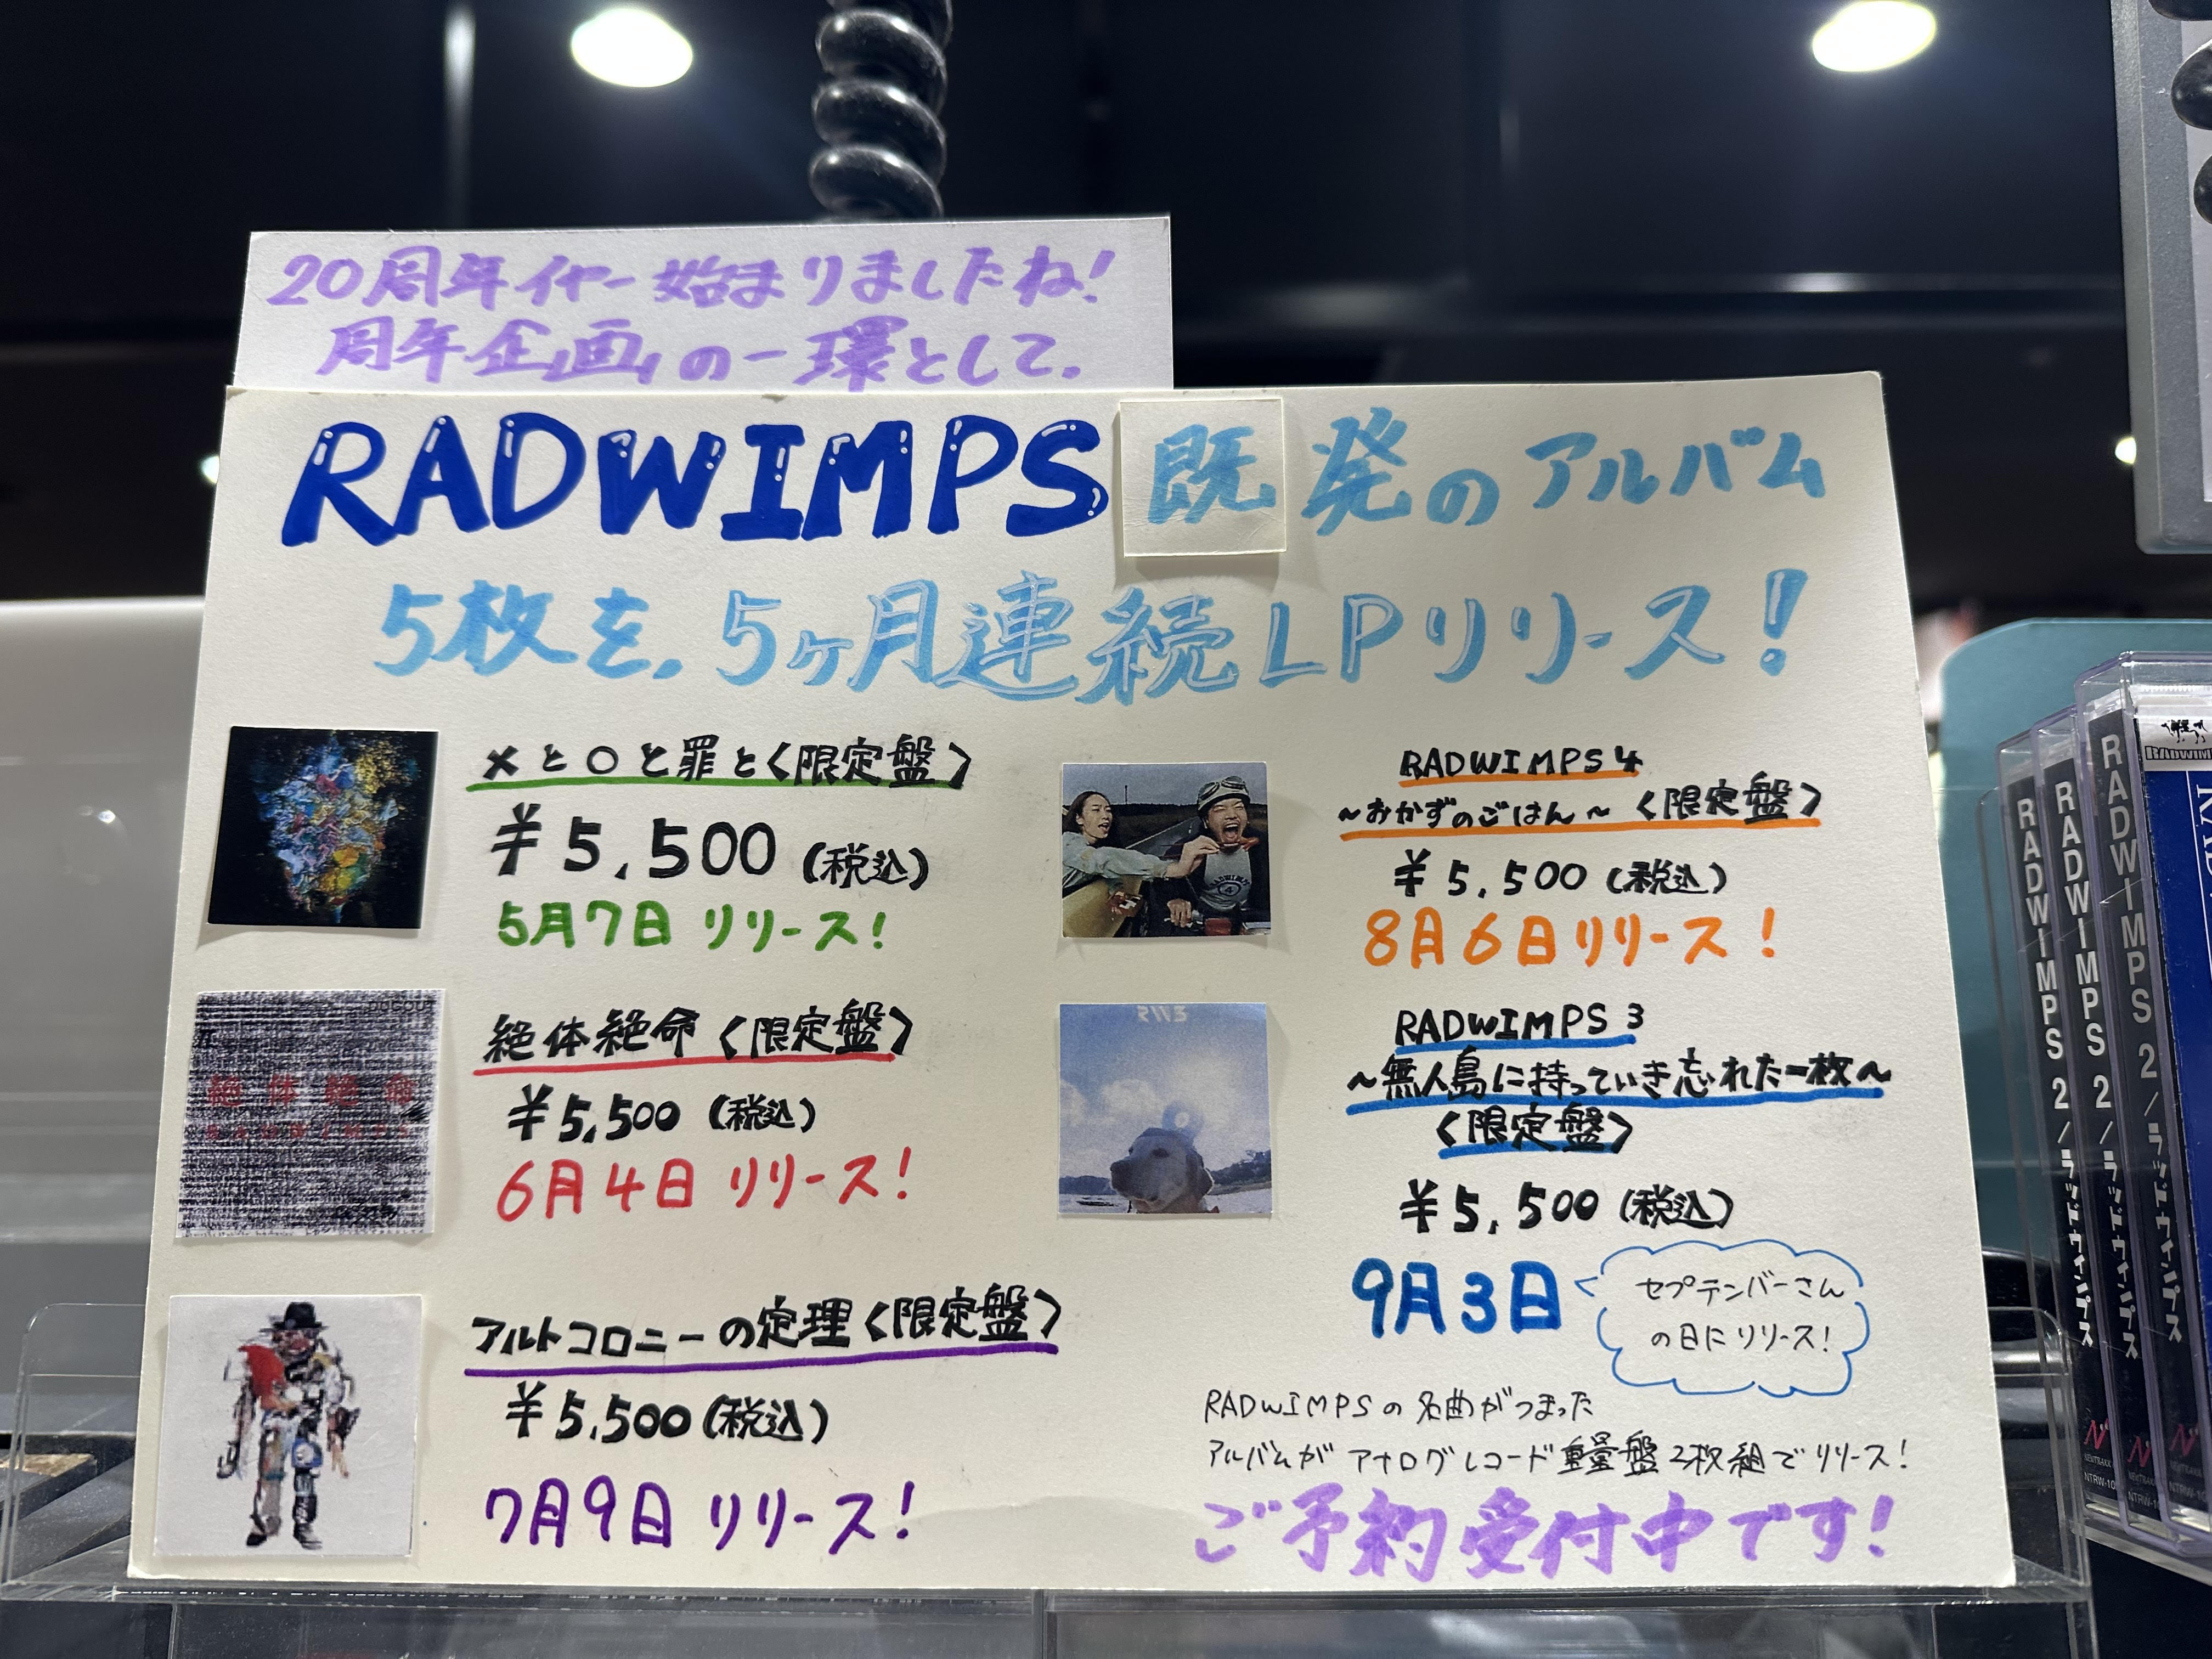 20周年イヤー始まりましたね!
周年企画の一環として、
RADWIMPS 既発のアルバム
5枚を、5ヶ月連続LPリリース!
×と○と罪と〈限定盤〉
¥5,500(税込)
5月7日 リリース!
絶体絶命〈限定盤〉
¥5,500(税込)
6月4日 リリース!
絶体絶命
アルトコロニーの定理〈限定盤〉
¥5,500(税込)
7月9日 リリース!
RADWIMPS 4
~おかずのごはん~〈限定盤〉
¥5,500(税込)
8月6日リリース!
RADWIMPS
4
RADWIMPS 3
~無人島に持っていき忘れた一枚~
〈限定盤〉
¥5,500(税込)
9月3日
セプテンバーさん
の日にリリース!
RW3
RADWIMPSの名曲がつまった
アルバムがアナログレコード重量盤2枚組でリリース!
ご予約受付中です!
RADWIMPS 2/ラッドウィンプス
RADWIMPS 2/ラッドウィンプス
RADWIMPS 2/ラッドウィンプス